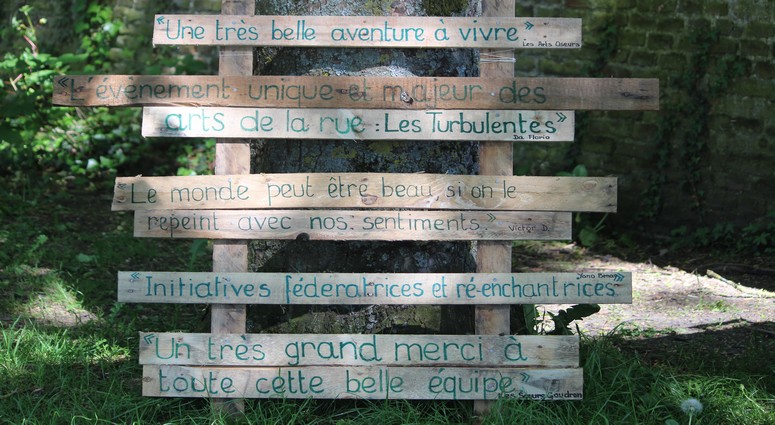 "Une très belle aventure à vivre."
Les Arts Oseurs
"L'événement unique et majeur des
arts de la rue : Les Turbulentes"
Da Floria
"Le monde peut être beau, si on le
repeint avec nos sentiments." Victor D.
"Initiatives féderatrices et ré-enchantrices"
Yana
"Un très grand merci à
toute cette belle équipe"
Les Sœurs Goudron